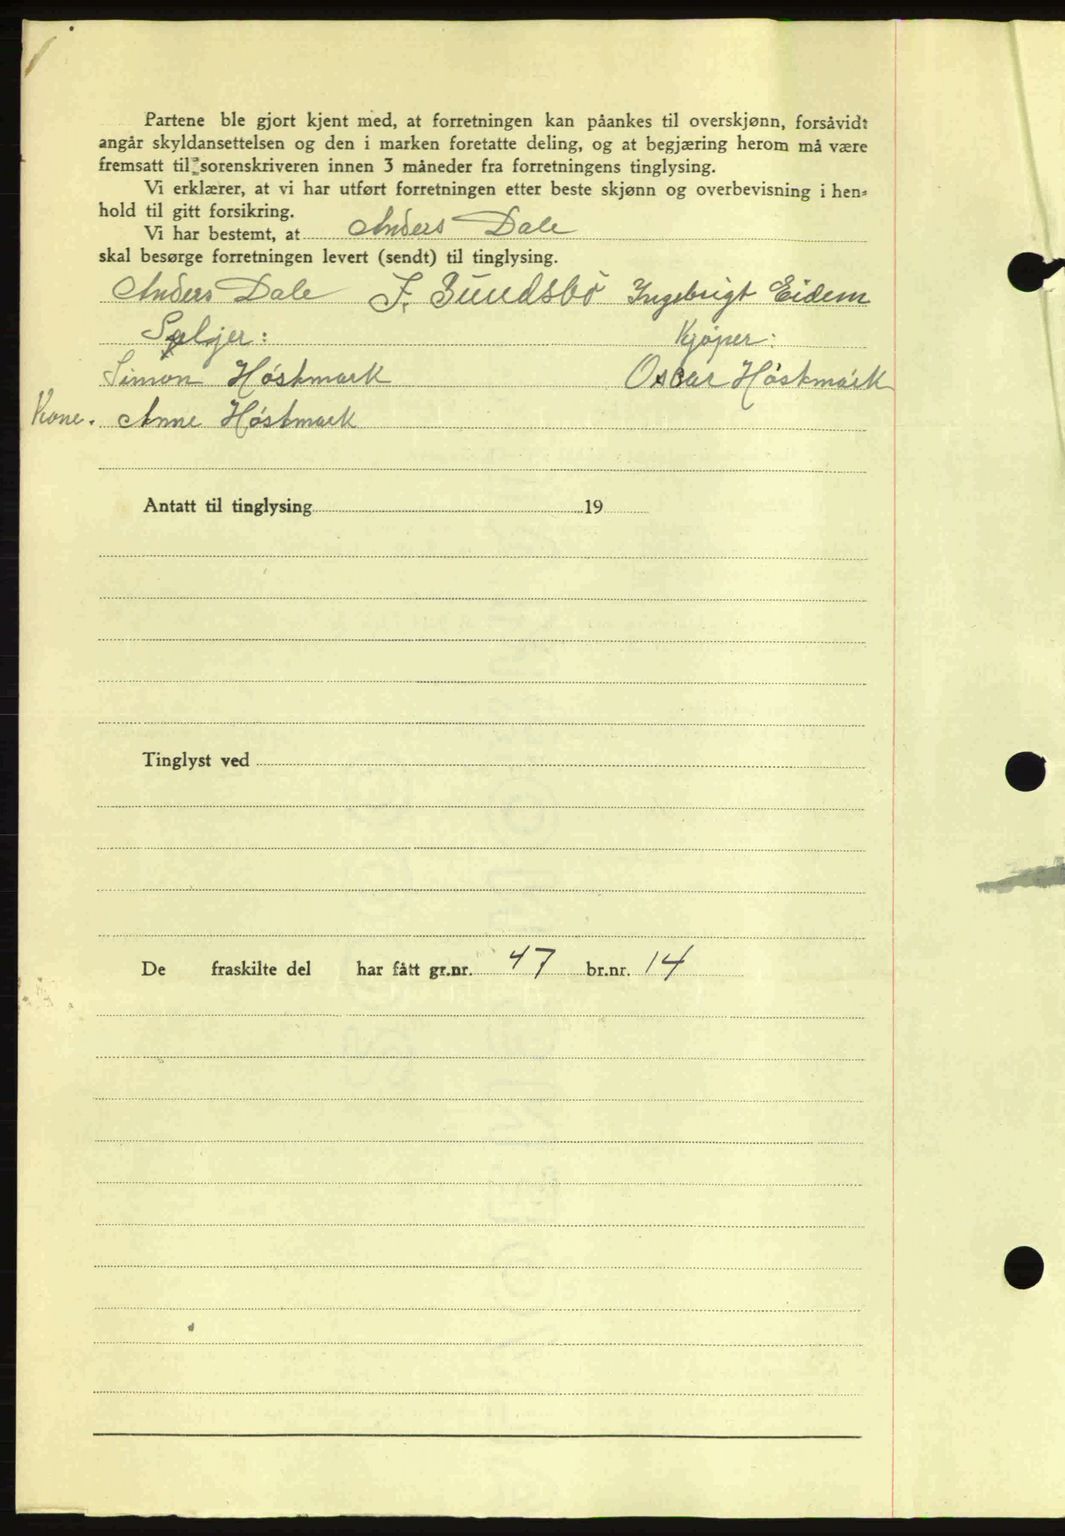 Partene ble gjort kjent med, at forretningen kan påankes til overskjønn, forsåvidt
angår skyldansettelsen og den i marken foretatte deling, og at begjæring herom må være
fremsatt til sorenskriveren innen 3 måneder fra forretningens tinglysing.
Vi erklærer, at vi har utført forretningen etter beste skjønn og overbevisning i hen-
hold til gitt forsikring.
Vi har bestemt, at Anders Dale
skal besørge forretningen levert (sendt) til tinglysing.
Anders Dale F. Sundsbö Ingebrigt Eidem
Seljer: Kjøper:
Simon Høstmark Oscar Høstmark
Kone. Anne Høstmark
Antatt til tinglysing 19
Tinglyst ved
De fraskilte del har fått gr.nr. 47 br.nr. 14